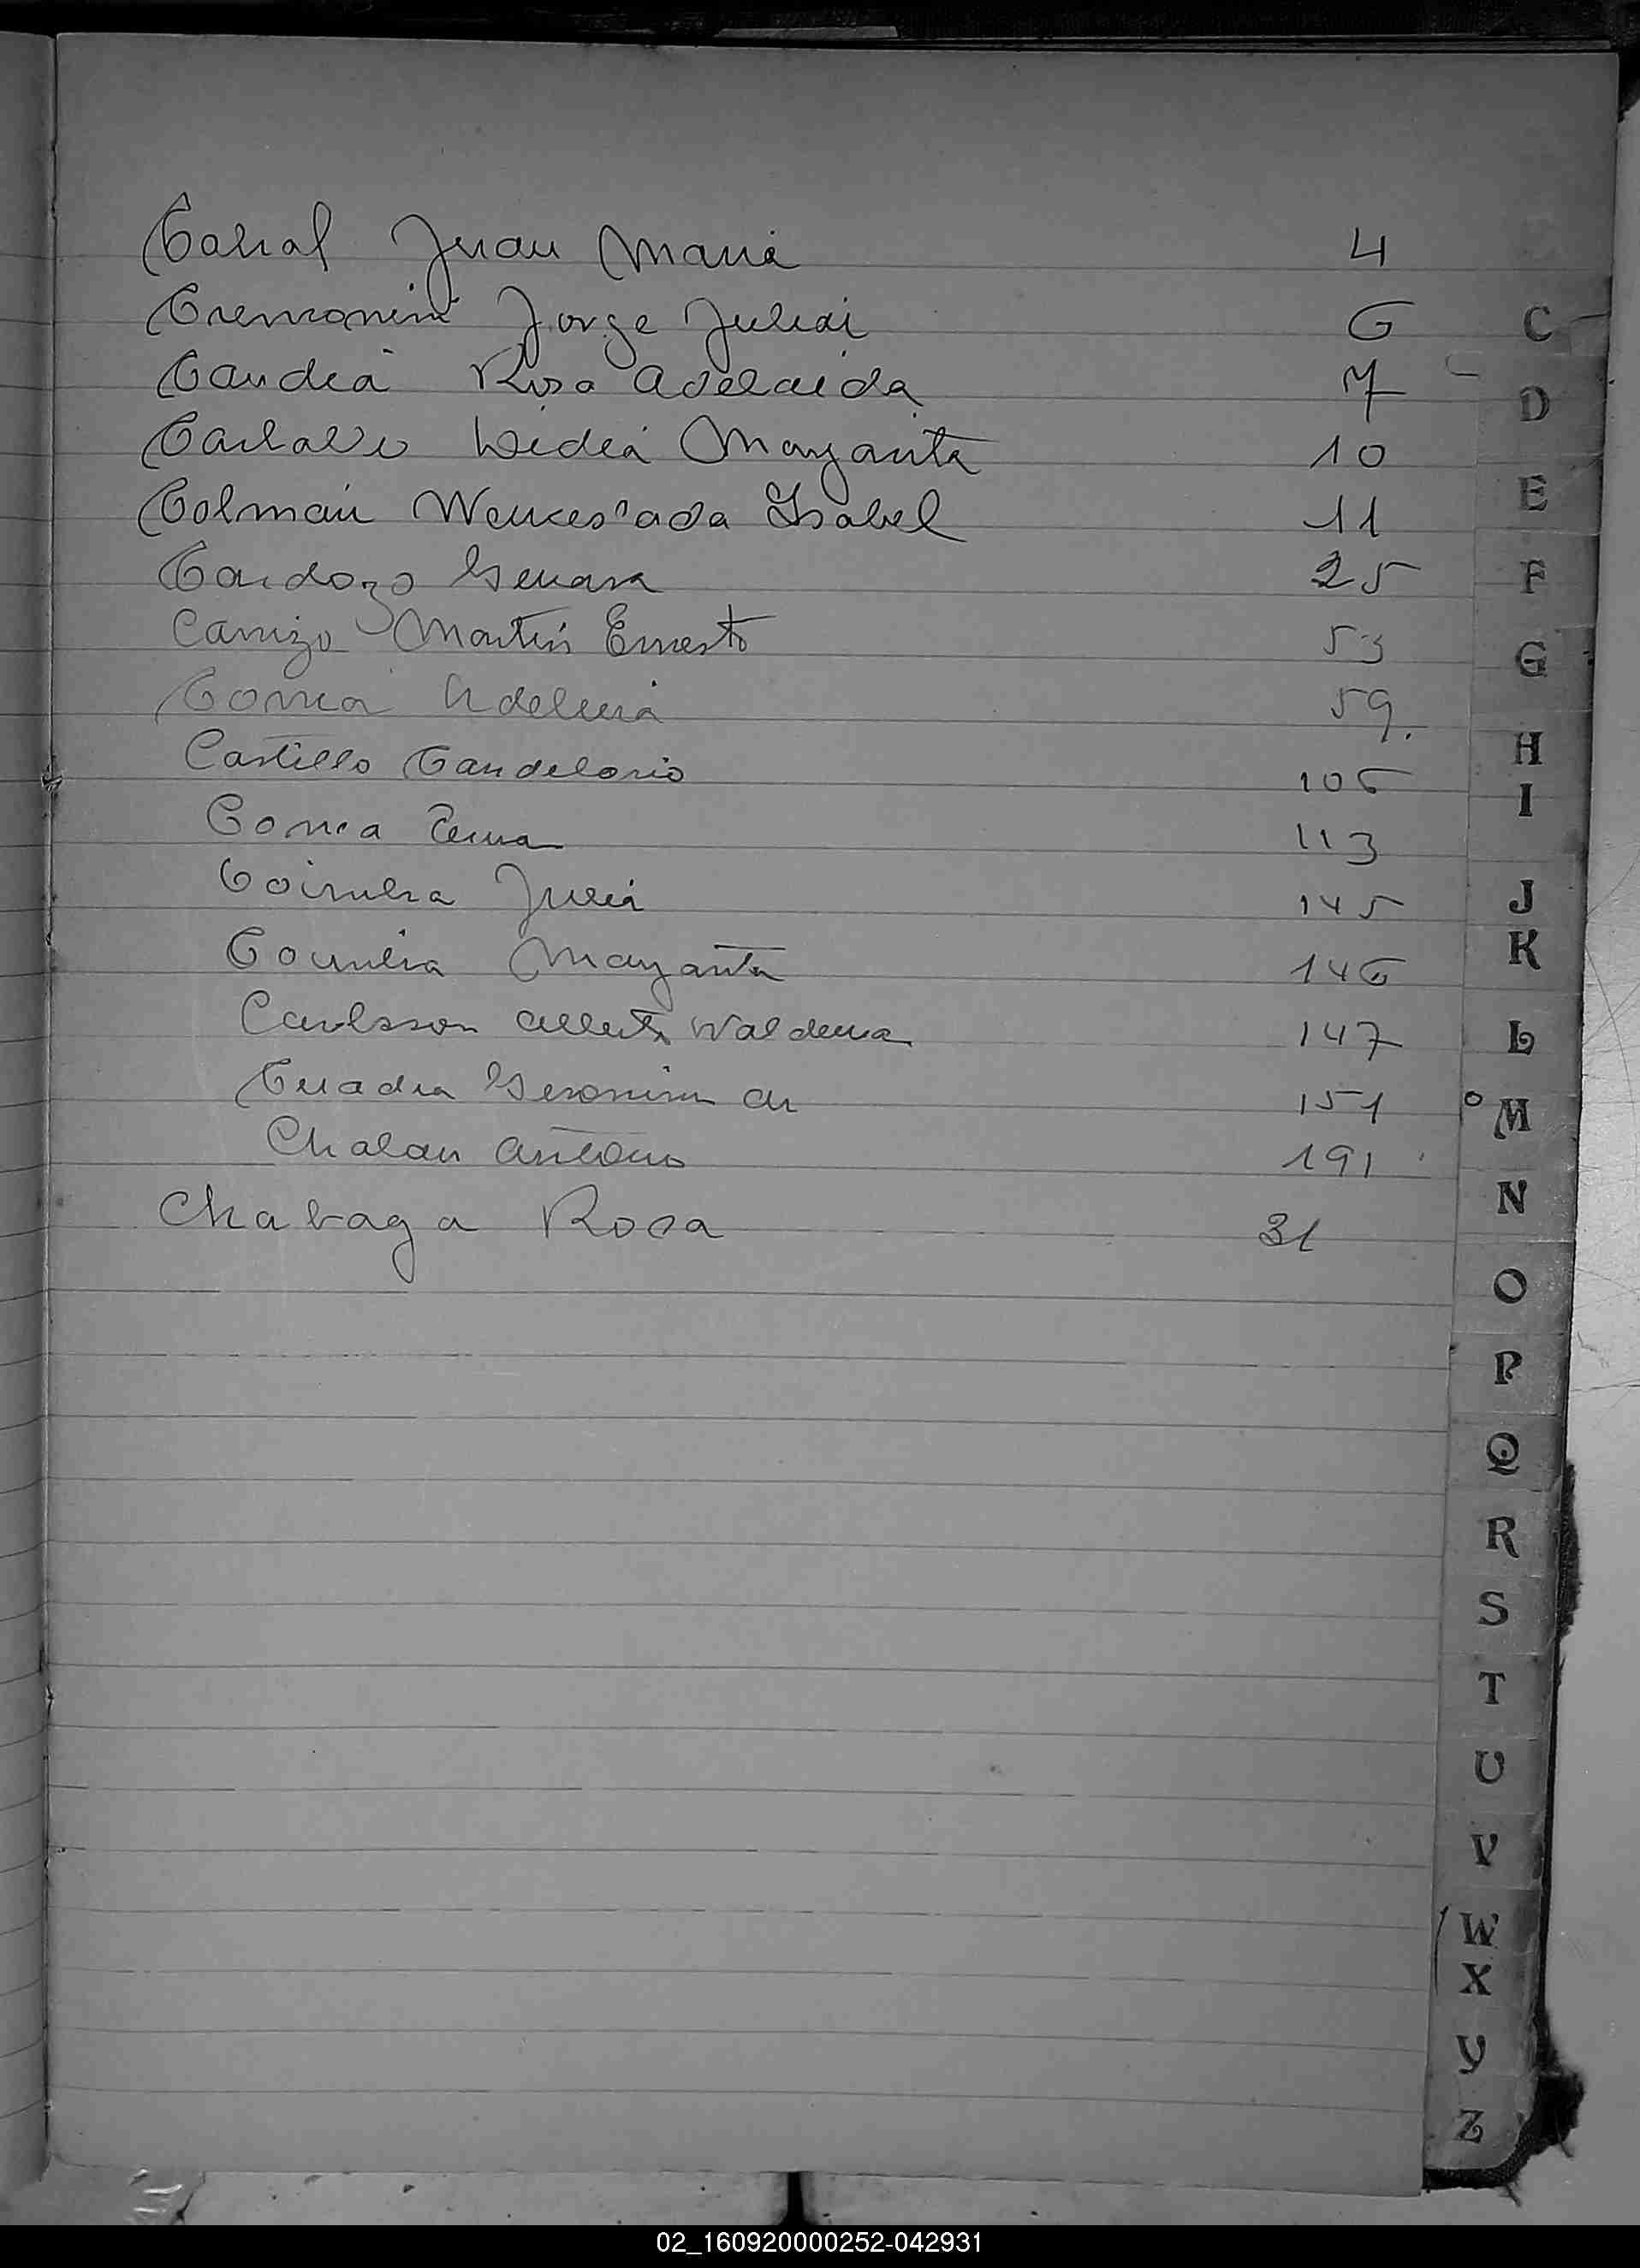 Cabral Juan Maria 4
Cremonini Jorge Julian 6
Candia Rosa Adelaida 7
Lidia Margarita 10
Colman Wenceslada Isabel 11
Cardozo Genara 25
Carrizo Martin Ernesto 53
Correa Adelina 59.
Castillo Candelario 106
Correa 113
Coimbra Julia 145
Coimbra Margarita 146
Carlsson Alberto Waldema 147
Cuadra Geronima de 151
Chalan Antonio 191
Chabaga Rosa 31
C
D
E
F
G
H
I
J
K
L
M
N
O
P
Q
R
S
T
U
V
W
X
Y
Z
02_160920000252-042931